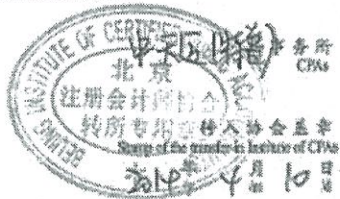 BEIJING INSTITUTE OF CERTIFIED
事务所
CPAs
北京
注册会计师协会
转所专用章
转入协会盖章
Stamp of the transfer-in Institute of CPAs
2014年 4月 10日